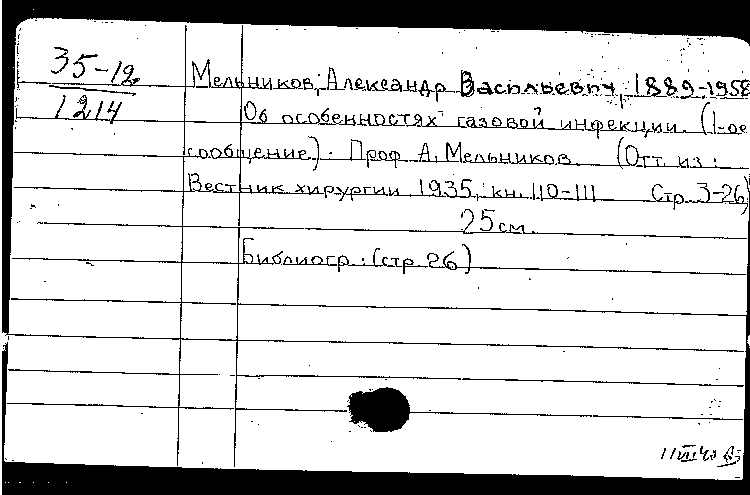 35-12
1214
Мельников, Александр Васильевич, 1889-1958
Об особенностях газовой инфекции. (1-ое
сообщение). Проф. А. Мельников. (Отт. из:
Вестник хирургии 1935, кн. 110-111 Стр. 3-26)
25 см.
Библиогр.: (стр. 26)
11 VII 40